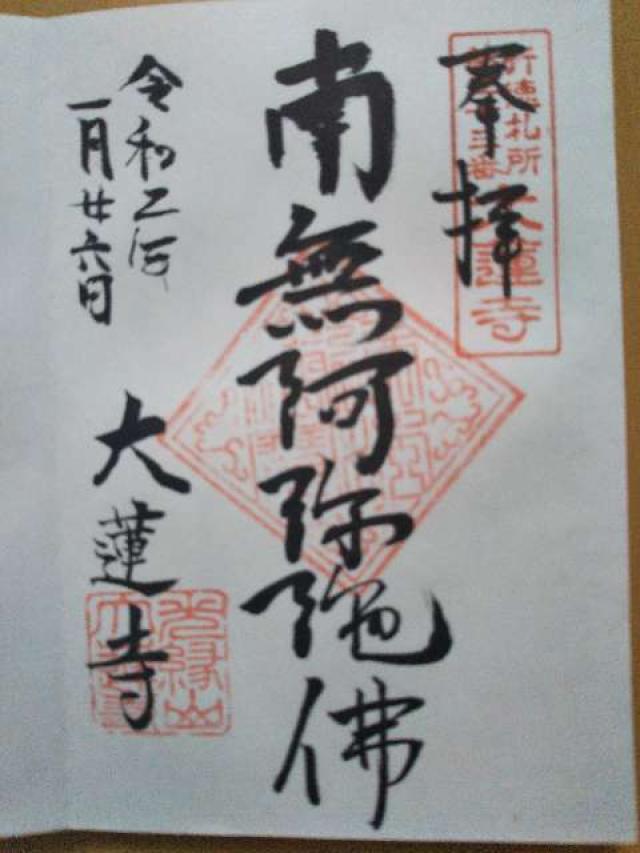 奉拝
行徳札所
大蓮寺
南無阿弥陀佛
令和二年
一月廿六日
大蓮寺